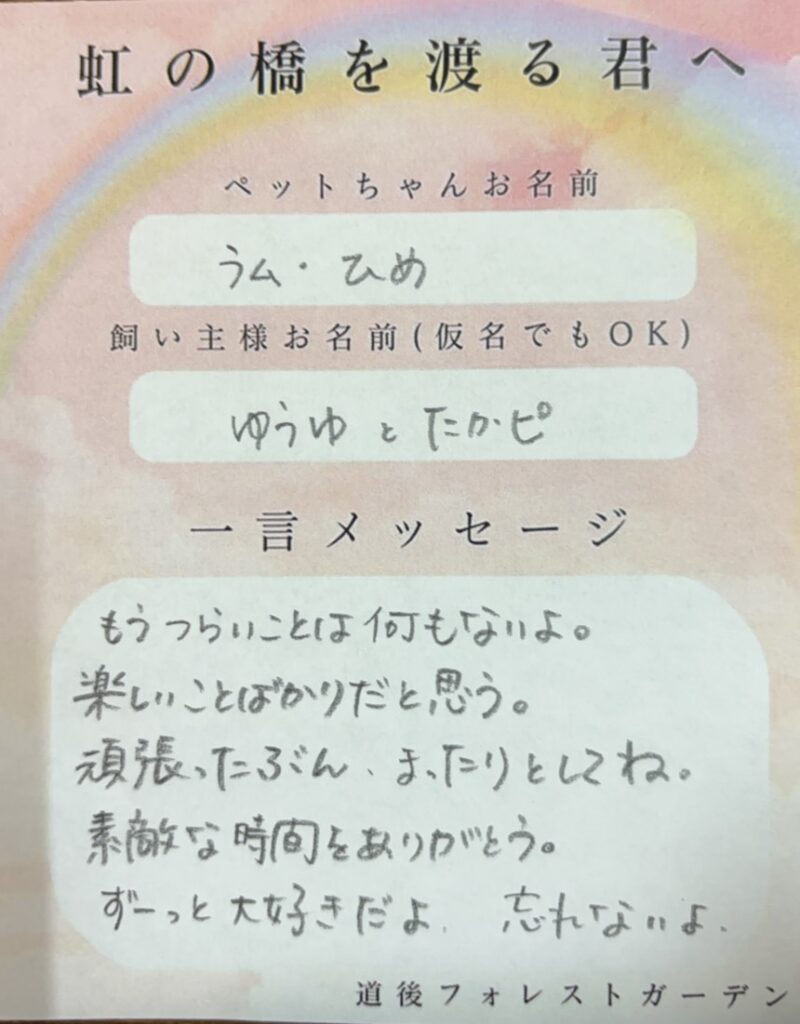 虹の橋を渡る君へ
ペットちゃんお名前
ラム・ひめ
飼い主様お名前(仮名でもOK)
ゆうゆ と たかピ
一言メッセージ
もうつらいことは何もないよ。
楽しいことばかりだと思う。
頑張ったぶん、まったりとしてね。
素敵な時間をありがとう。
ずーっと大好きだよ、忘れないよ、
道後フォレストガーデン